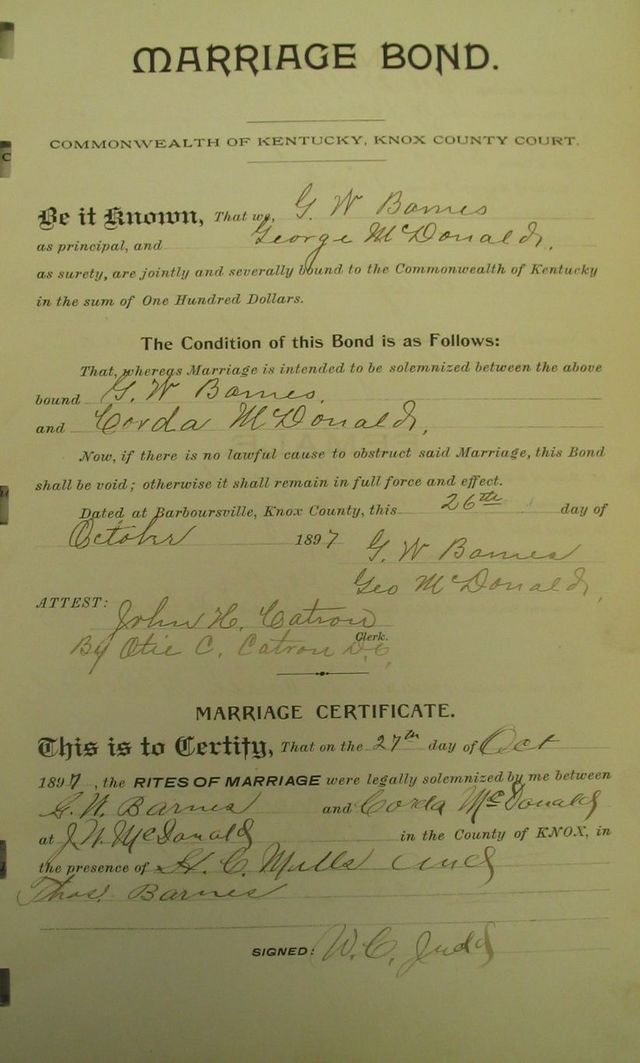 MARRIAGE BOND.
COMMONWEALTH OF KENTUCKY, KNOX COUNTY COURT.
Be it Known, That we, G. W Barnes
as principal, and George McDonald,
as surety, are jointly and severally bound to the Commonwealth of Kentucky
in the sum of One Hundred Dollars.
The Condition of this Bond is as Follows:
That, whereas Marriage is intended to be solemnized between the above
bound G. W Barnes,
and Corda McDonald,
Now, if there is no lawful cause to obstruct said Marriage, this Bond
shall be void; otherwise it shall remain in full force and effect.
Dated at Barboursville, Knox County, this 26th day of
October 1897
G. W Barnes
Geo McDonald,
ATTEST:
John H. Catron
Clerk.
By Otie C. Catron D.C.
MARRIAGE CERTIFICATE.
This is to Certify, That on the 27th day of Oct
1897, the RITES OF MARRIAGE were legally solemnized by me between
G. W. Barnes and Corda McDonald
at J. W. McDonald in the County of KNOX, in
the presence of H. C. Mills and
Thos. Barnes
SIGNED: W. C. Judd